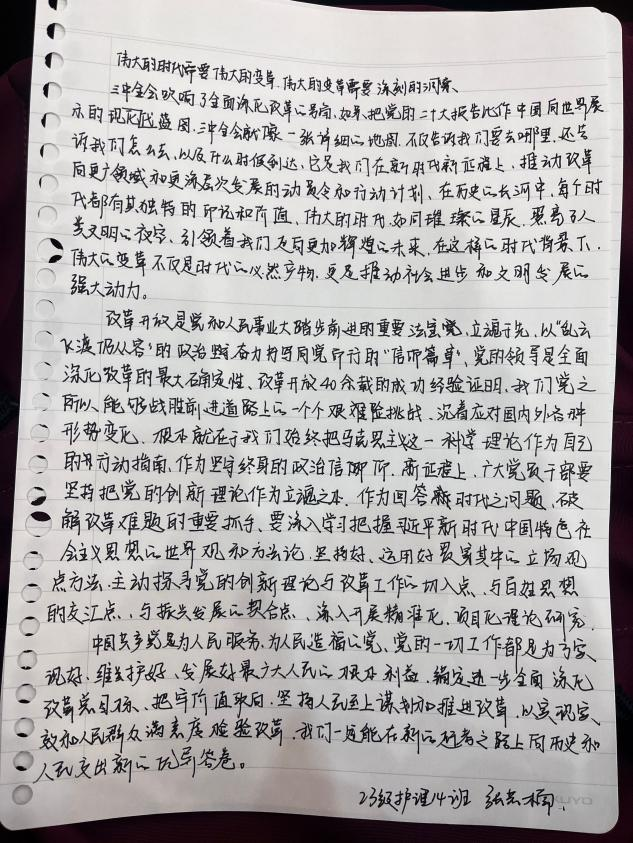 伟大的时代需要伟大的变革,伟大的变革需要深刻的洞察、
三中全会吹响了全面深化改革的号角,如果把党的二十大报告比作中国向世界展
示的现代化蓝图,三中全会就像一张详细的地图,不仅告诉我们要去哪里,还告
诉我们怎么去,以及什么时候到达,它是我们在新时代新征程上,推动改革
向更广领域和更深层次发展的动员令和行动计划、在历史的长河中,每个时
代都有其独特的印记和价值、伟大的时代,如同璀璨的星辰,照亮了人
类文明的夜空,引领着我们走向更加辉煌的未来,在这样的时代背景下,
伟大的变革不仅是时代的必然产物,更是推动社会进步和文明发展的
强大动力。
改革开放是党和人民事业大踏步前进的重要法宝,立魂于先,以“乱云
飞渡仍从容”的政治 奋力抒写同党 行的“信仰篇章”、党的领导是全面
深化改革的最大确定性、改革开放40余载的成功经验证明,我们党之
所以能够战胜前进道路上的一个个艰难险挑战、沉着应对国内外各种
形势变化、根本就在于我们始终把马克思主义这一科学理论作为自己
的行动指南、作为坚守终身的政治信仰所,新征程上,广大党员干部要
坚持把党的创新理论作为立魂之本、作为回答新时代之问题、破
解改革难题的重要抓手、要深入学习把握习近平新时代中国特色社
会主义思想的世界观和方法论、坚持好、运用好贯穿其中的立场观
点方法、主动探寻党的创新理论与改革工作的切入点、与百姓思想
的交汇点、与振兴发展的契合点、深入开展精准化、项目化理论研究,
中国共产党是为人民服务,为人民造福的党、党的一切工作都是为了实
现好、维护好、发展好最广大人民的根本利益,锚定进一步全面深化
改革总目标、把牢价值取向、坚持人民至上谋划和推进改革,以实现实
效和人民群众满意度检验改革,我们一定能在新的赶考之路上向历史和
人民交出新的优异答卷。
23级护理14班 张 楠
KUYO